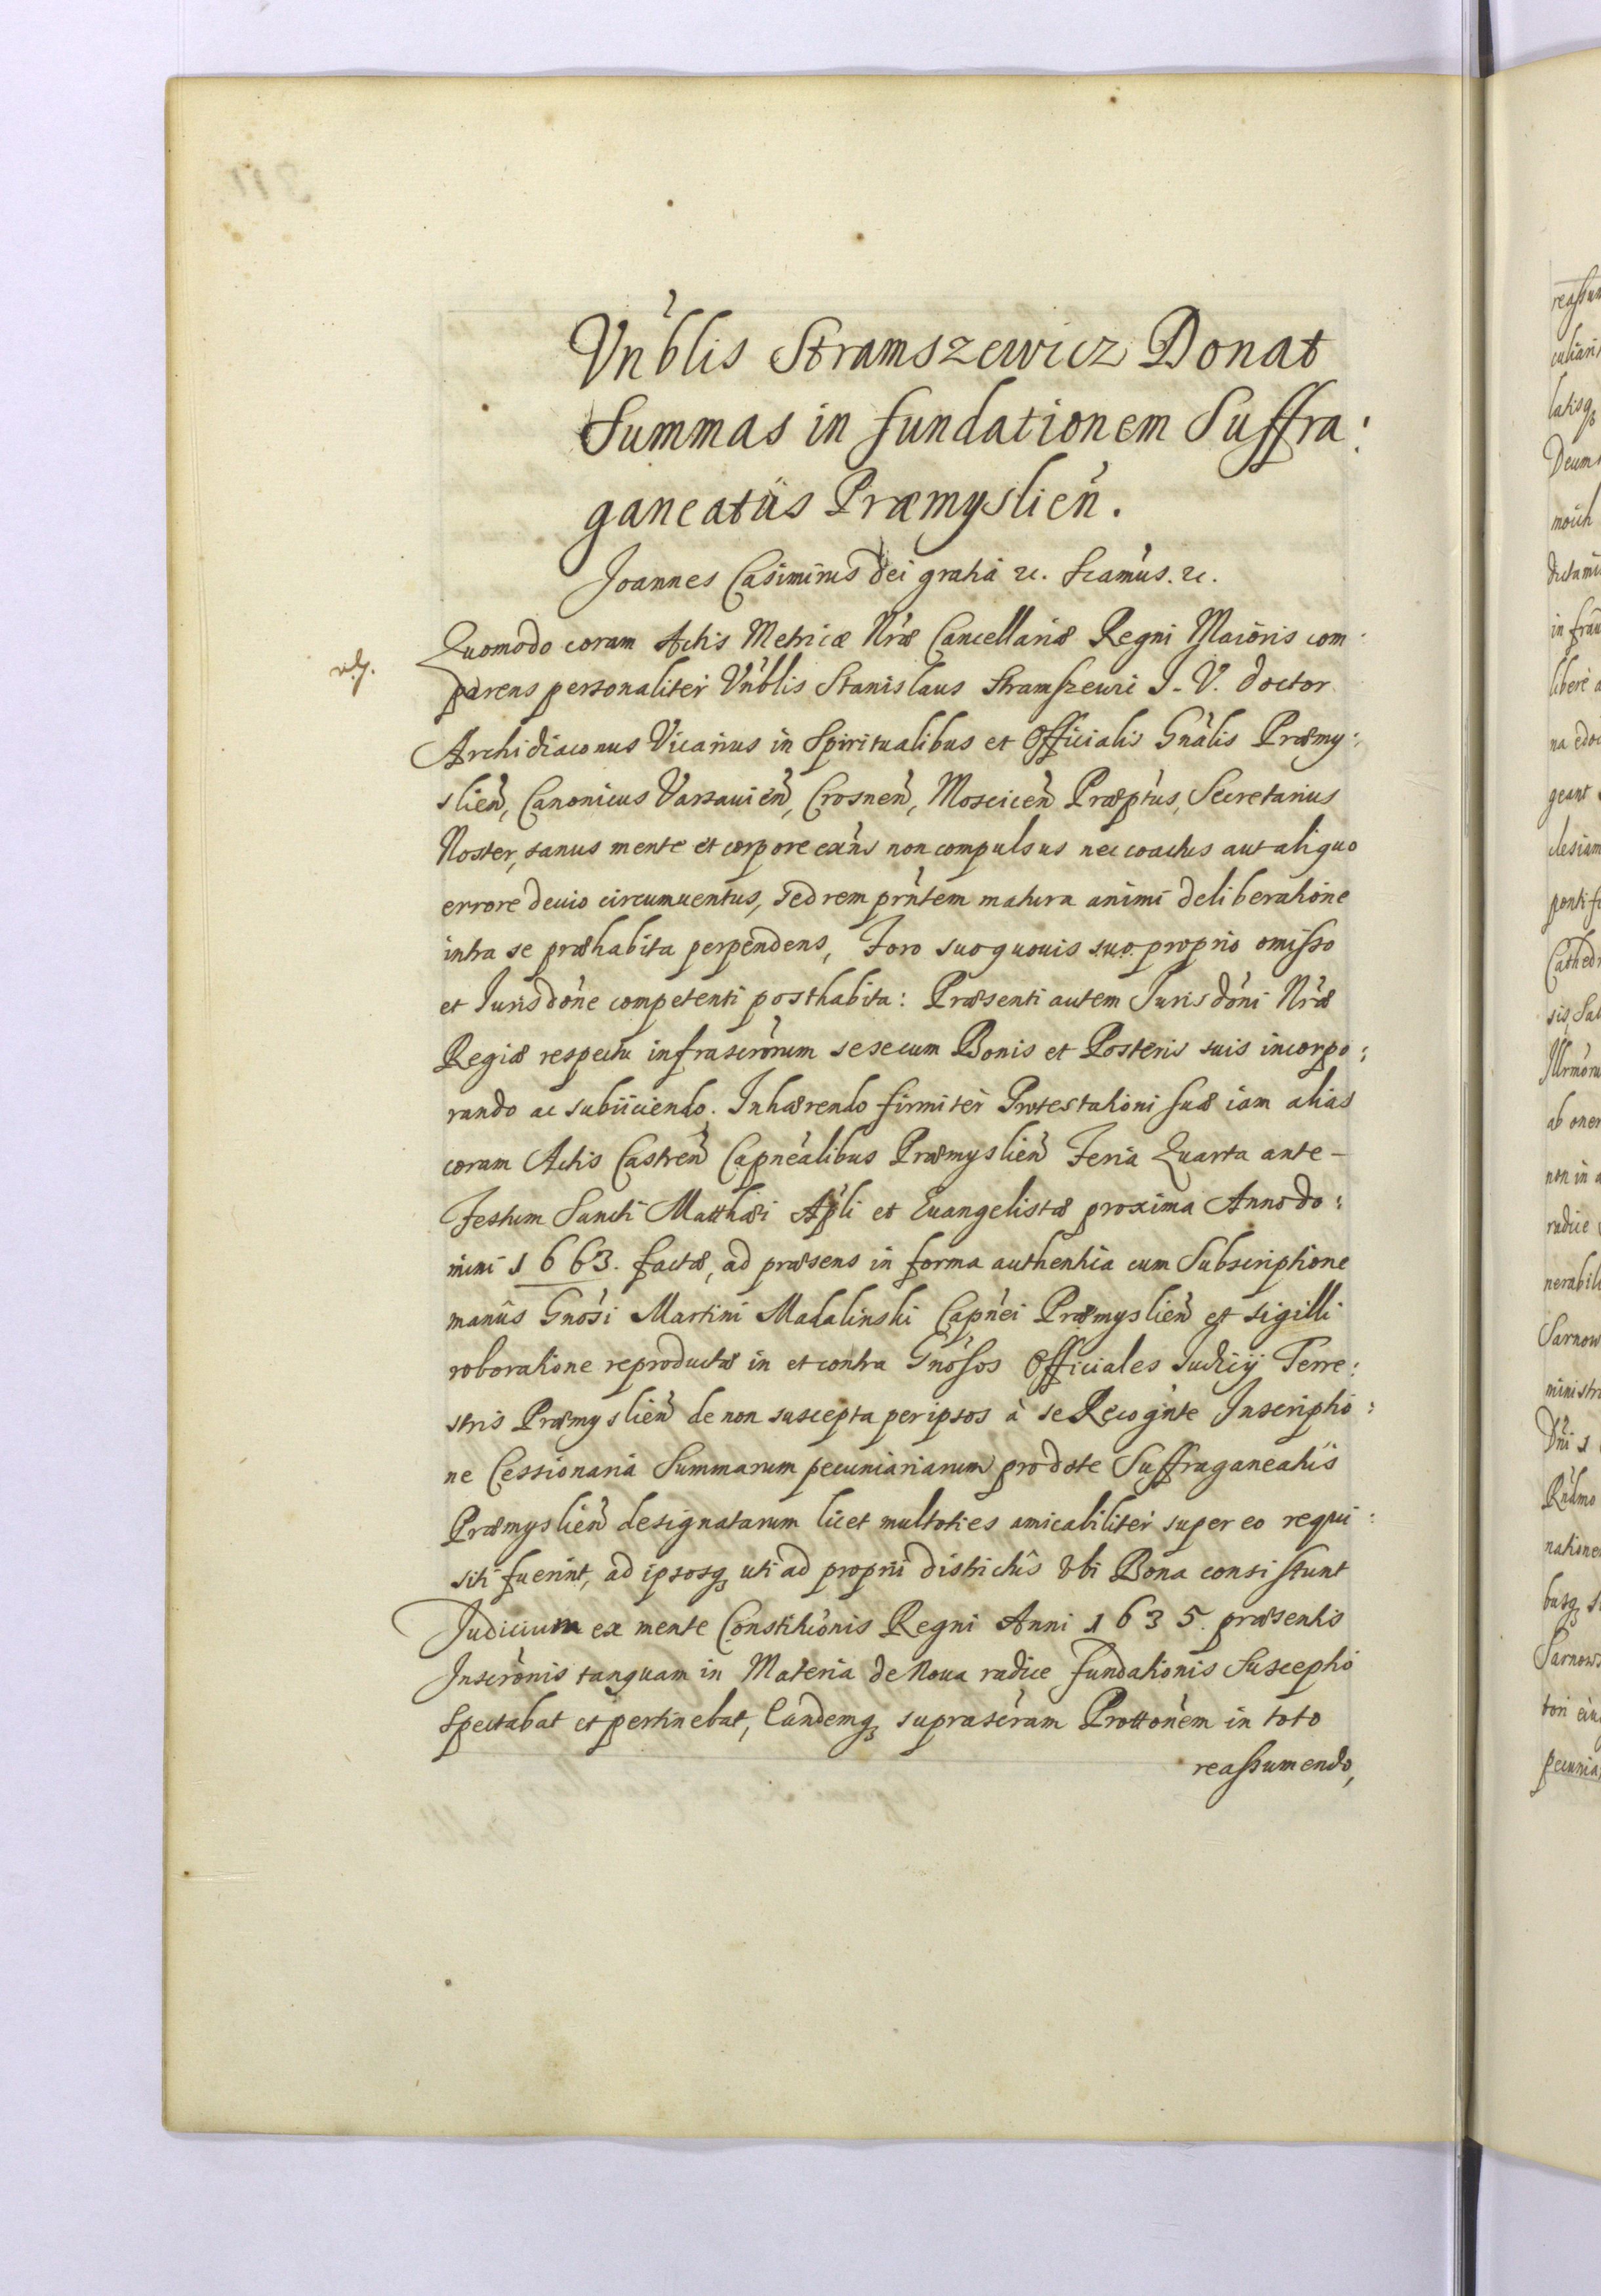 Vnblis Stramszewicz Donat
Summas in fundationem Suffra:
ganeatûs Præmyslien̄.
Joannes Casimirus dei gratia &c. Scamus. &c.
Quomodo coram Actis Metricæ Nræ Cancellariæ Regni Maioris com:
parens personaliter Vnblis Stanislaus Stramszewic J. V. doctor
Archidiaconus Vicarius in Spiritualibus et Officialis Gnalis Præmy:
slien̄, Canonicus Varsauien̄, Crosnen̄, Moscicen̄ Præptus, Secretarius
Noster, sanus mente et corpore exñs non compulsus nec coactus aut aliquo
errore deuio circumuentus, sed rem prñtem matura animi deliberatione
intra se præhabita perpendens, Foro suo quouis suo proprio omisso
et Jurisdoñe competenti posthabita: Præsenti autem Jurisdoñi Nræ
Regiæ respectu infrascrorum sese cum Bonis et Posteris suis incorpo:
rando ac subiiciendo. Inhærendo firmiter Protestationi suæ iam alias
coram Actis Castren̄ Capnealibus Præmyslien̄ Feria Quarta ante-
Festum Sancti Matthæi Apli et Euangelistæ proxima Anno do:
mini 1663. factæ, ad præsens in forma authentica cum Subscriptione
manûs Gnosi Martini Madalinski Capnei Præmyslien̄ et sigilli
roboratione reproductæ in et contra Gnosos Officiales Judicij Terre:
stris Præmyslien̄ de non suscepta per ipsos à se Recognte Inscriptio:
ne Cessionaria Summarum pecuniariarum pro dote Suffraganeatûs
Præmyslien̄ designatarum licet multoties amicabiliter super eo requi:
siti fuerint, ad ipsosq; uti ad proprii districtûs vbi Bona consistunt
Judicium ex mente Constitionis Regni Anni 1635. præsentis
Inscronis tanquam in Materia de Noua radice fundationis Susceptio
spectabat et pertinebat, Eandemq; suprascram Prottonem in toto
reassumendo,